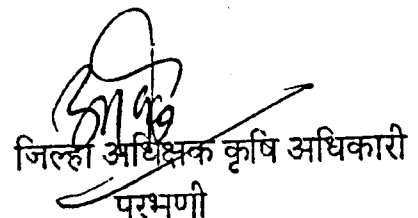 जिल्हा अधिक्षक कृषि अधिकारी
परभणी